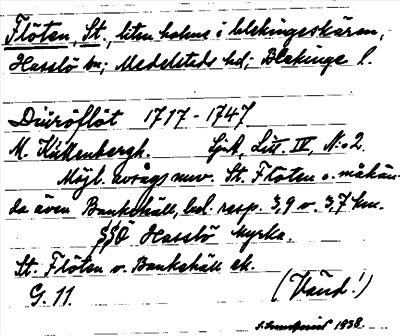 Flöten, St., liten holme i blekingeskären,
Hasslö sn; Medelstads hd; Blekinge l.
Diüröflöt 1717-1747
M. Klinkenbergh. Sjök, Litt. IV, N:o 2.
Möjl. avsågs nuv. St. Flöten o. måhän-
da även Bankshäll, bel. resp. 3,9 o. 3,7 km.
SSÖ Hasslö kyrka.
St. Flöten o. Bankshäll ek.
G. 11. (Vänd!)
1938.